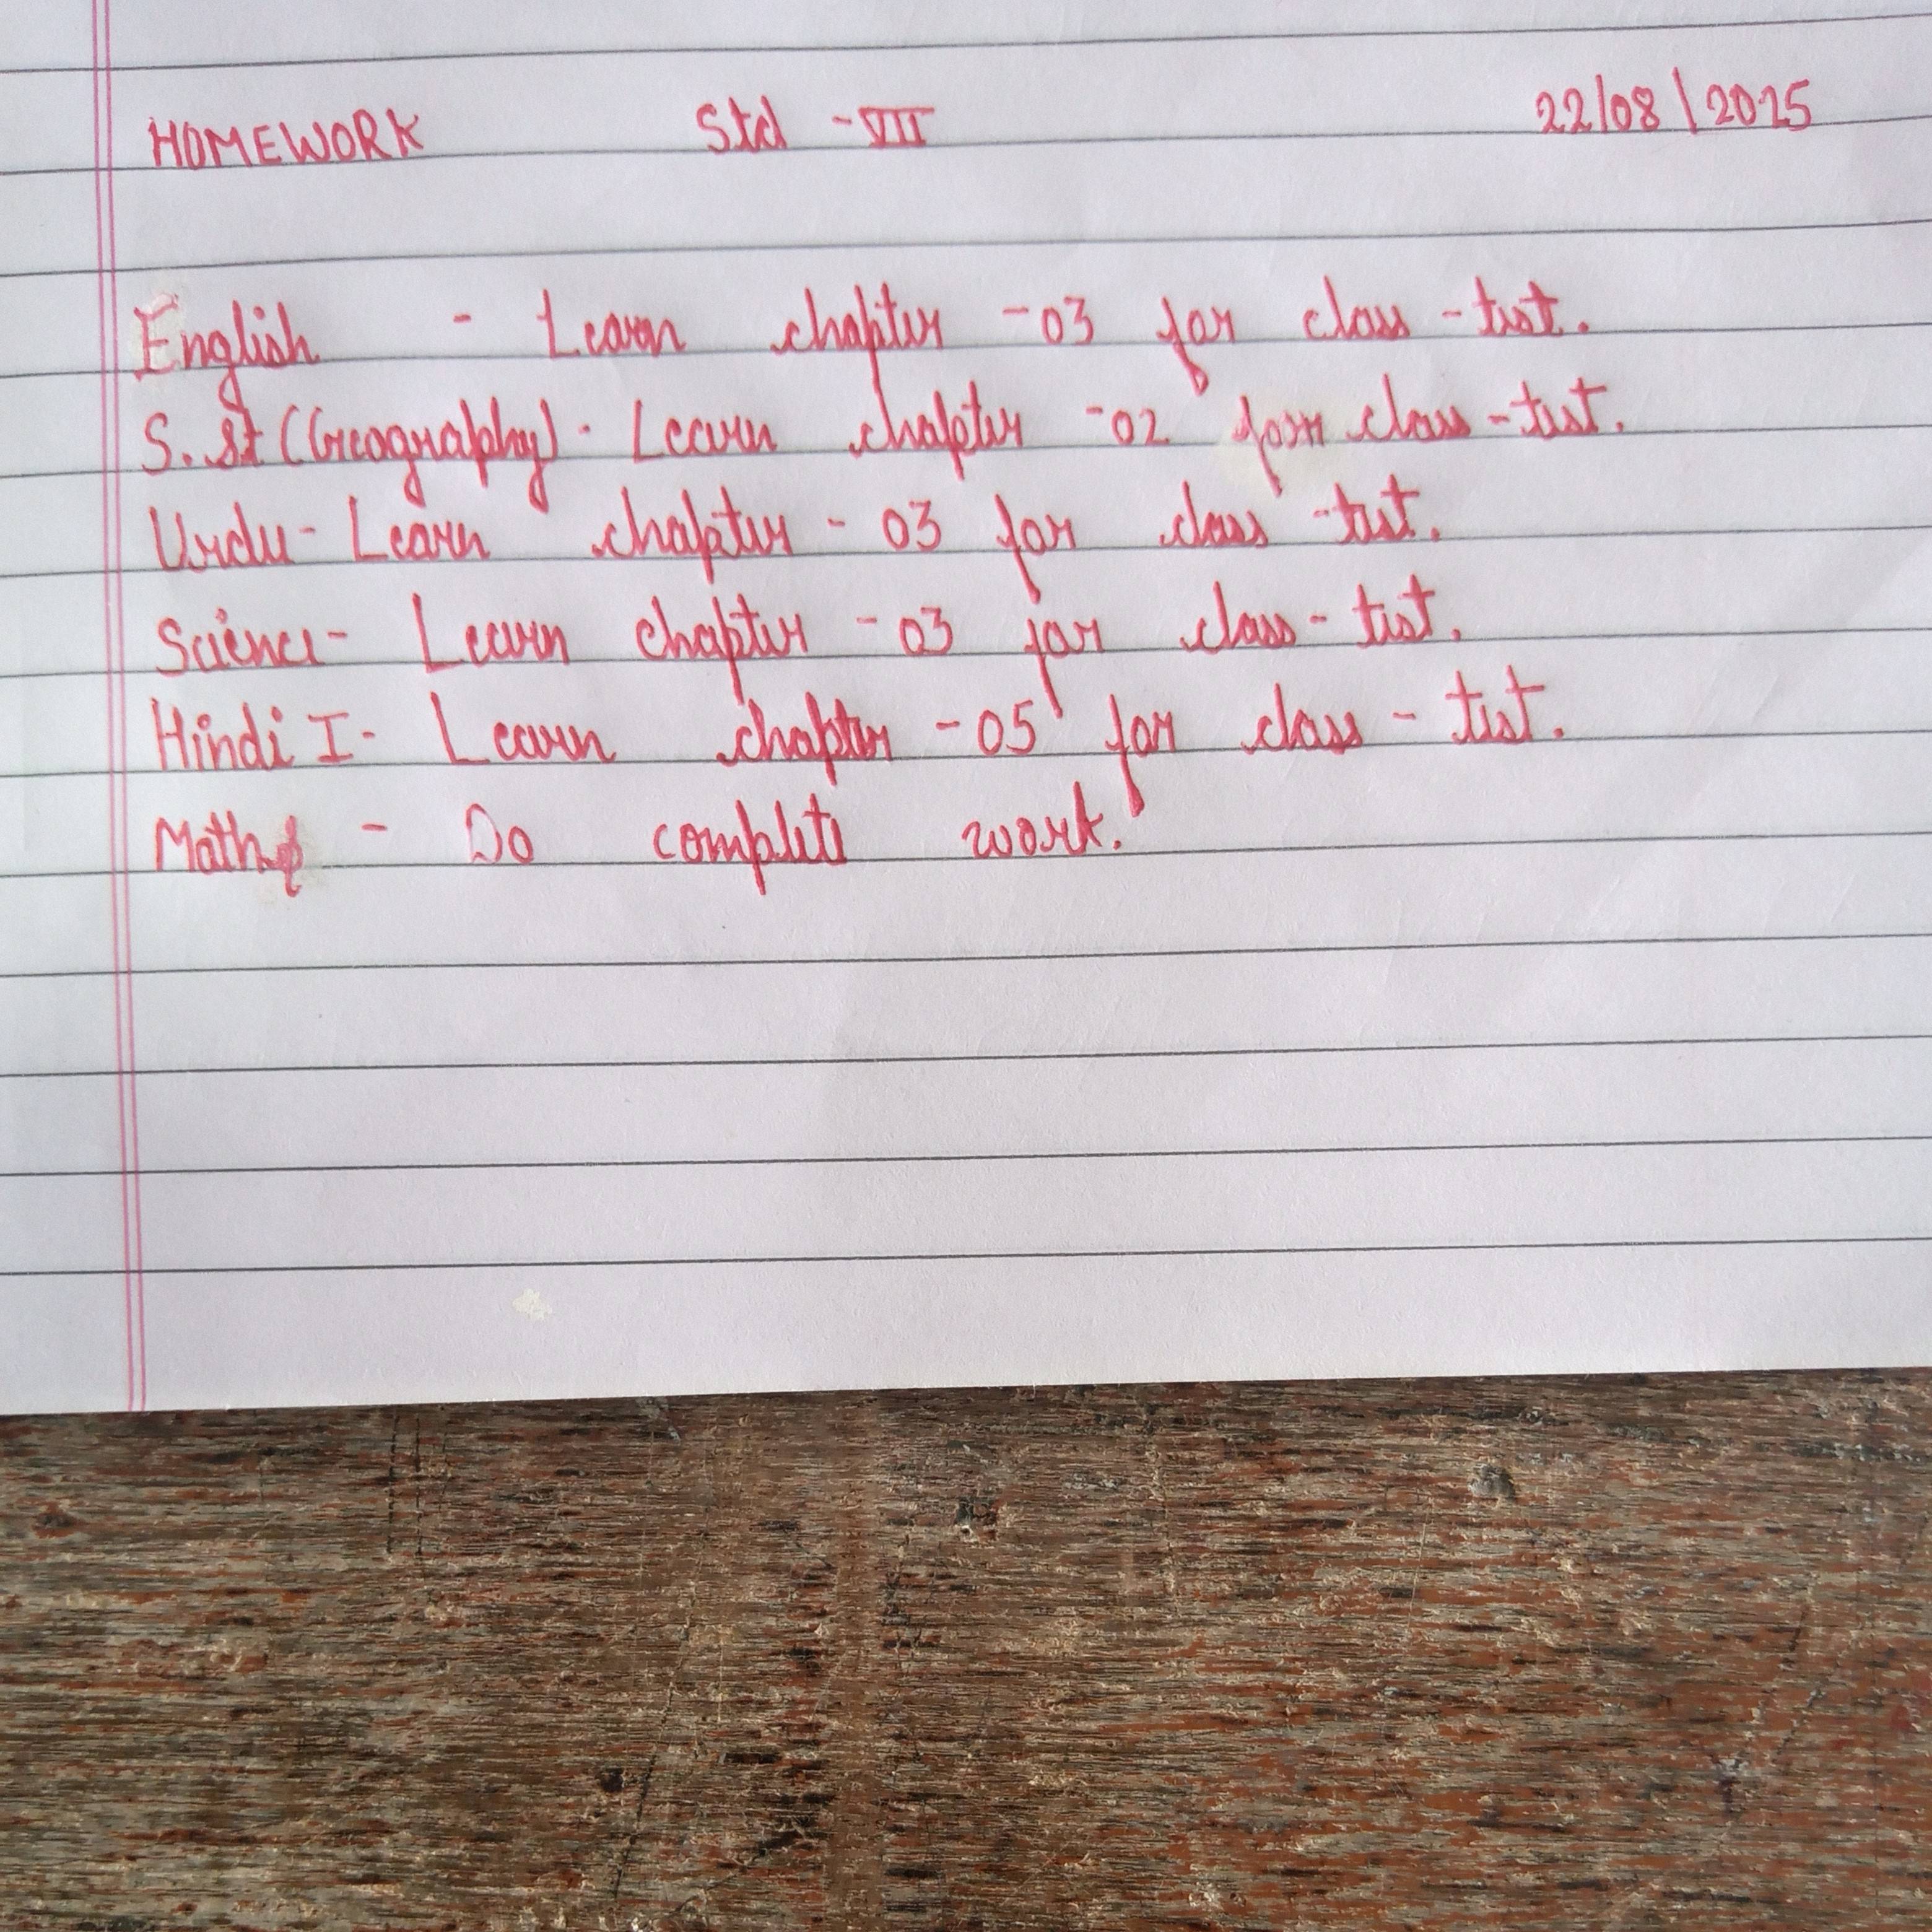 HOMEWORK Std - VII 22/08/2025
English - Learn chapter - 03 for class - test.
S. St (Geography) - Learn chapter - 02 for class - test.
Urdu - Learn chapter - 03 for class - test.
Science - Learn chapter - 03 for class - test.
Hindi I - Learn chapter - 05 for class - test.
Maths - Do complete work.